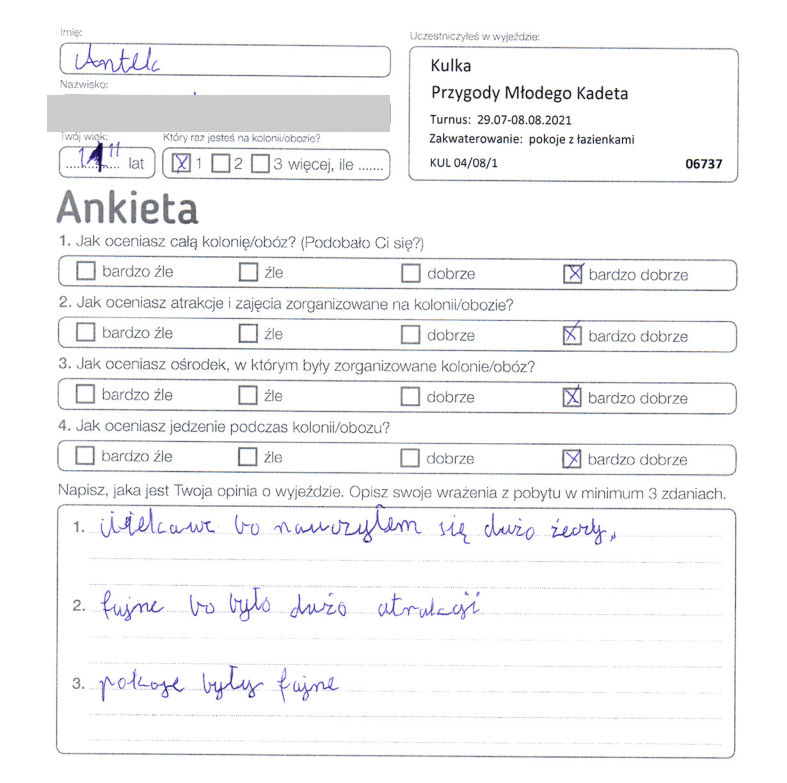 Imię:
Antek
Nazwisko:
Uczestniczyłeś w wyjeździe:
Kulka
Przygody Młodego Kadeta
Turnus: 29.07-08.08.2021
Zakwaterowanie: pokoje z łazienkami
KUL 04/08/1 06737
Twój wiek:
11 lat
Który raz jesteś na kolonii/obozie?
1 2 3 więcej, ile .......
Ankieta
1. Jak oceniasz całą kolonię/obóz? (Podobało Ci się?)
bardzo źle źle dobrze bardzo dobrze
2. Jak oceniasz atrakcje i zajęcia zorganizowane na kolonii/obozie?
bardzo źle źle dobrze bardzo dobrze
3. Jak oceniasz ośrodek, w którym były zorganizowane kolonie/obóz?
bardzo źle źle dobrze bardzo dobrze
4. Jak oceniasz jedzenie podczas kolonii/obozu?
bardzo źle źle dobrze bardzo dobrze
Napisz, jaka jest Twoja opinia o wyjeździe. Opisz swoje wrażenia z pobytu w minimum 3 zdaniach.
1. ciekawe bo nauczyłem się dużo żeczy.
2. fajne bo było dużo atrakcji
3. pokoje były fajne